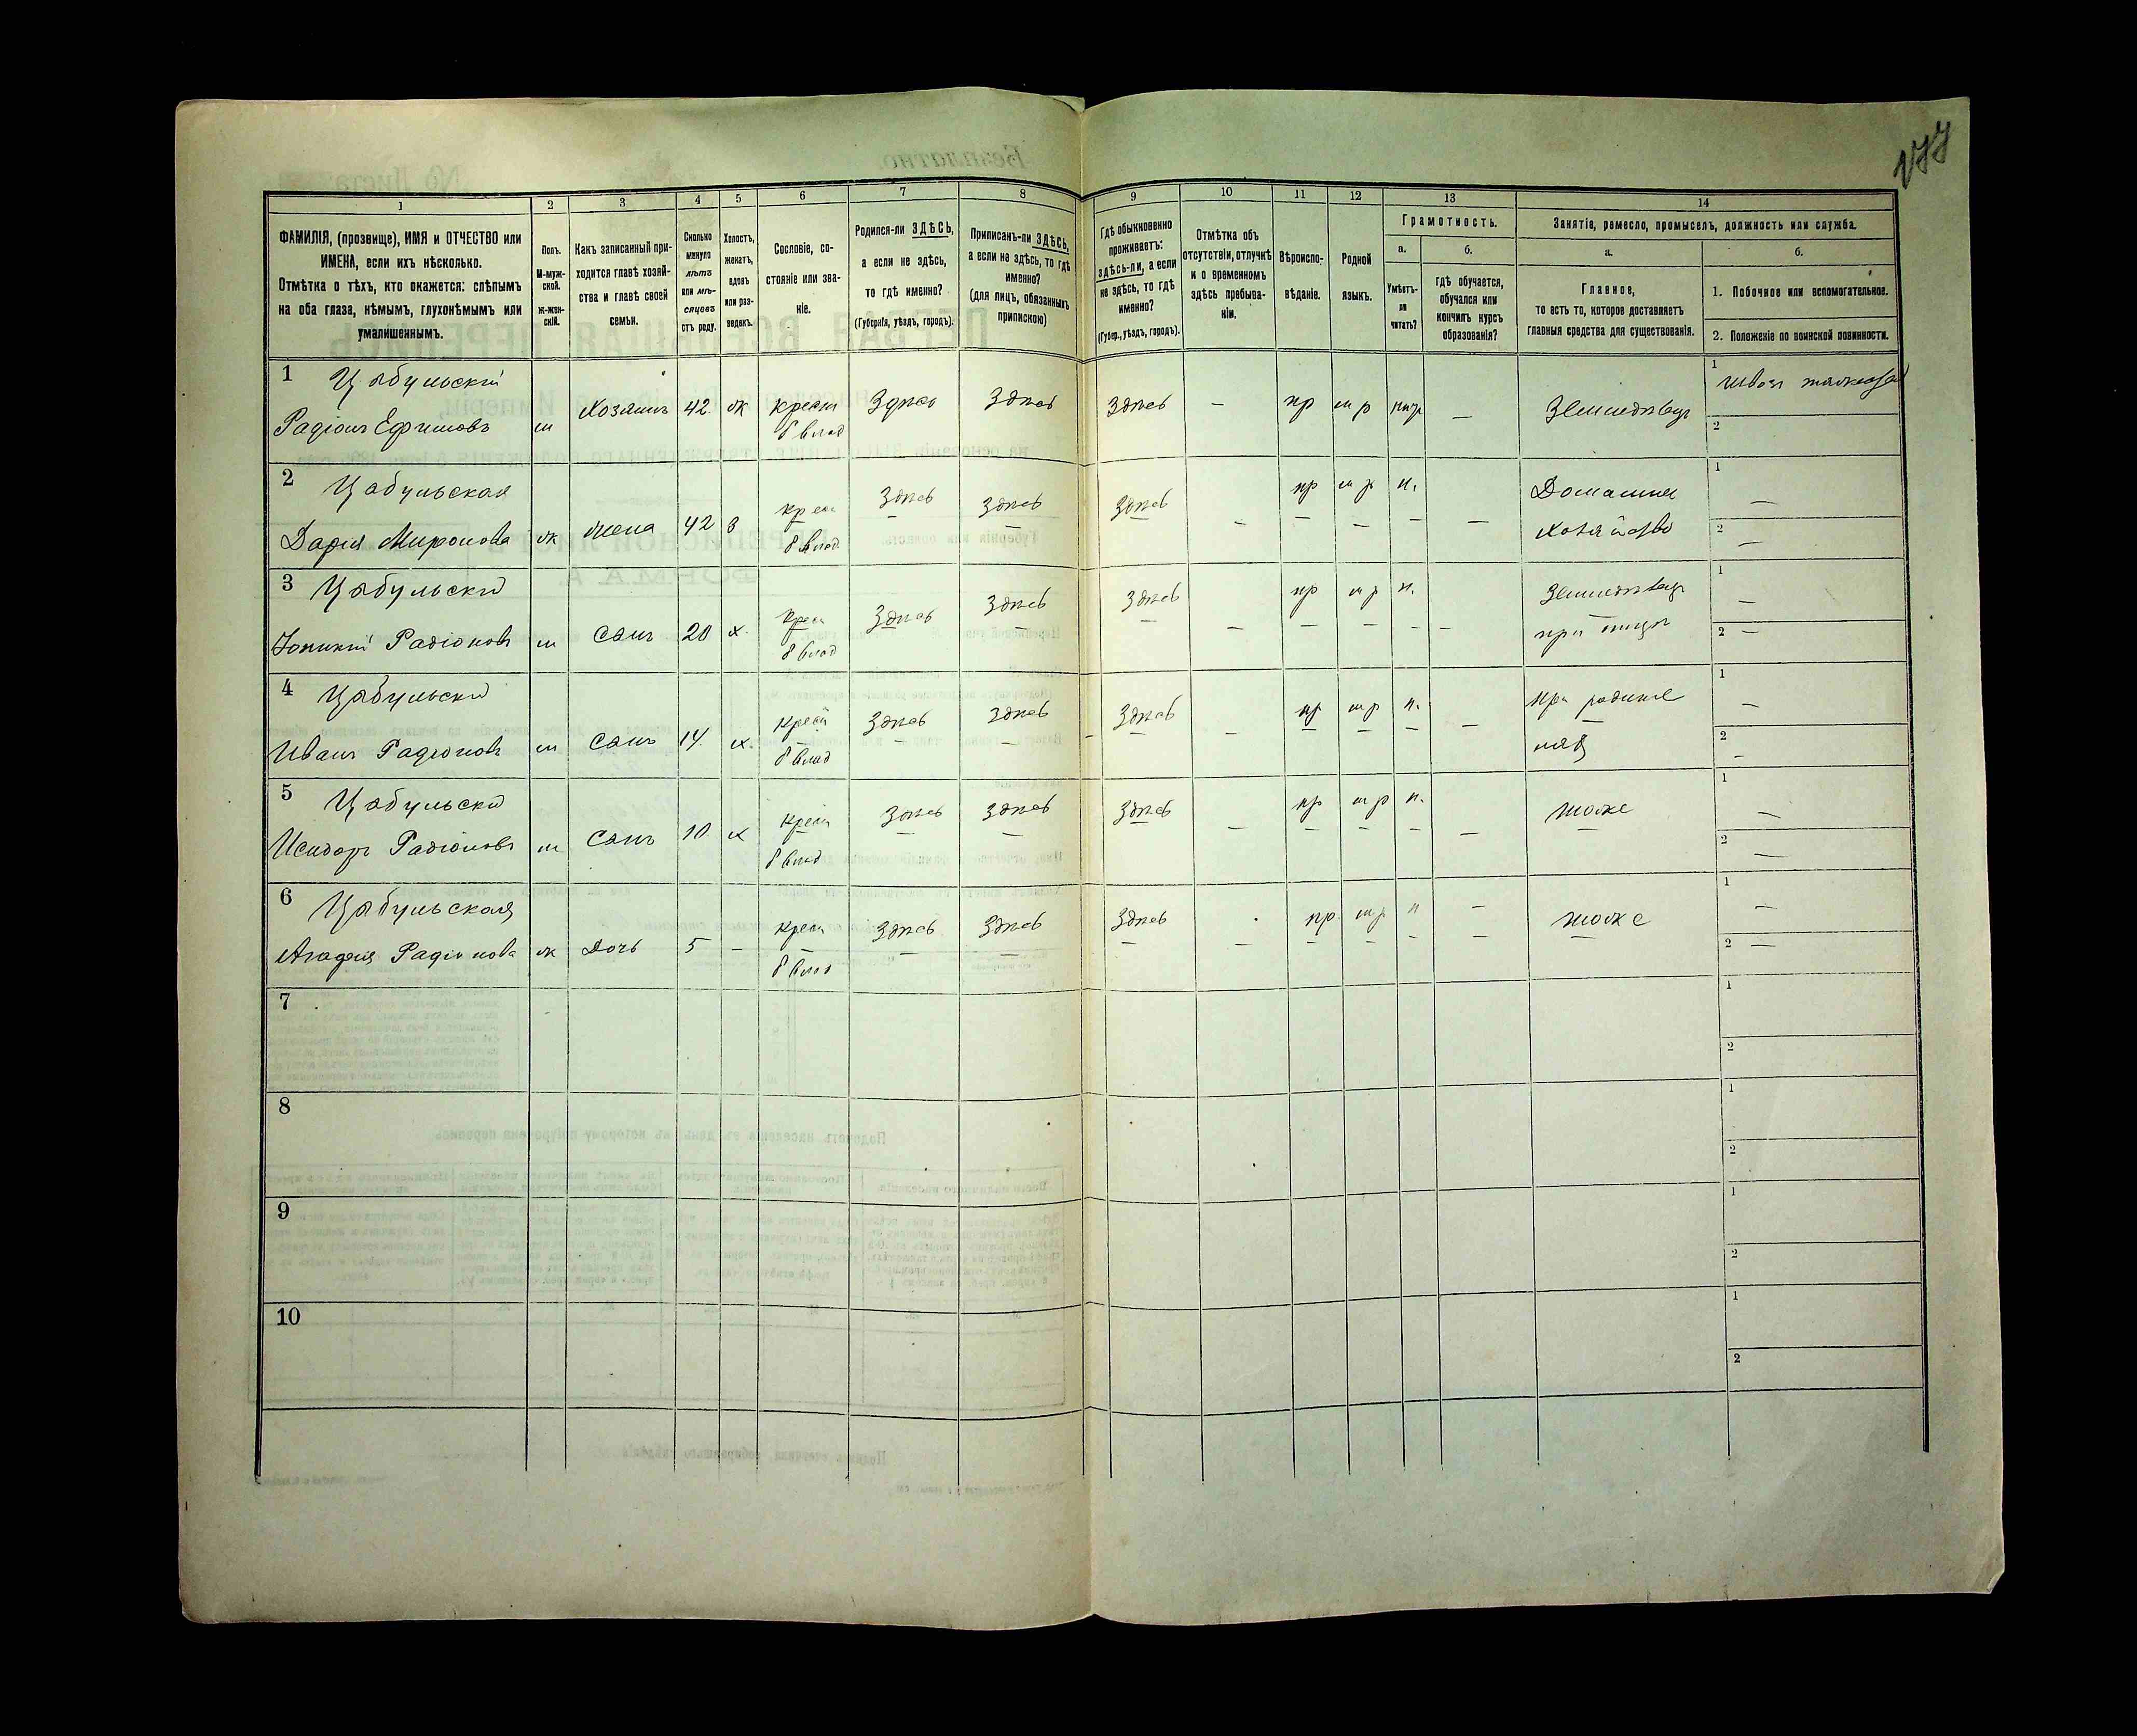 177
1
2
3
4
5
6
7
8
9
10
11
12
13
14
ФАМИЛІЯ, (прозвище), ИМЯ и ОТЧЕСТВО или
ИМЕНА, если ихъ нѣсколько.
Отмѣтка о тѣхъ, кто окажется: слѣпымъ
на оба глаза, нѣмымъ, глухонѣмымъ или
умалишеннымъ.
Полъ.
М-муж-
ской.
Ж-жен-
скій.
Какъ записанный при-
ходится главѣ хозяй-
ства и главѣ своей
семьи.
Сколько
минуло
лѣтъ
или мѣ-
сяцевъ
отъ роду.
Холостъ,
женатъ,
вдовъ
или раз-
веденъ.
Сословіе, со-
стояніе или зва-
ніе.
Родился-ли ЗДѢСЬ,
а если не здѣсь,
то гдѣ именно?
(Губернія, уѣздъ, городъ).
Приписанъ-ли ЗДѢСЬ,
а если не здѣсь, то гдѣ
именно?
(для лицъ, обязанныхъ
припискою)
Гдѣ обыкновенно
проживаетъ:
здѣсь-ли, а если
не здѣсь, то гдѣ
именно?
(Губер., уѣздъ, городъ).
Отмѣтка объ
отсутствіи, отлучкѣ
и о временномъ
здѣсь пребыва-
ніи.
Вѣроиспо-
вѣданіе.
Родной
языкъ.
Грамотность.
а.
Умѣетъ-
ли
читать?
б.
гдѣ обучается,
обучался или
кончилъ курсъ
образованія?
Занятіе, ремесло, промыселъ, должность или служба.
а.
Главное,
то есть то, которое доставляетъ
главныя средства для существованія.
б.
1. Побочное или вспомогательное.
2. Положеніе по воинской повинности.
1 Цабульскій
Радіонъ Ефимовъ м Хозяинъ 42. ж крест б влад Здѣсь Здѣсь Здѣсь — пр м р — Земледѣлецъ 1
2
2 Цабульская
Дарія Миронова ж жена 42 З крест б влад Здѣсь Здѣсь Здѣсь — пр м р н. — Домашнее хозяйство 1 —
2 —
3 Цабульскій
Радіоновъ м сынъ 20 х. крест б влад Здѣсь Здѣсь Здѣсь — пр м р н. — Земледѣлецъ при отцѣ 1 —
2 —
4 Цабульскій
Иванъ Радіоновъ м сынъ 14. х. крест б влад Здѣсь Здѣсь Здѣсь — пр м р н. — При родите ляхъ 1 —
2 —
5 Цабульскій
Исидоръ Радіоновъ м сынъ 10 х крест б влад Здѣсь Здѣсь Здѣсь — пр м р н. — тоже 1 —
2 —
6 Цабульская
Агафія Радіонова ж Дочь 5 — крест б влад Здѣсь Здѣсь Здѣсь — пр м р н — тоже 1 —
2 —
7
1
2
8
1
2
9
1
2
10
1
2